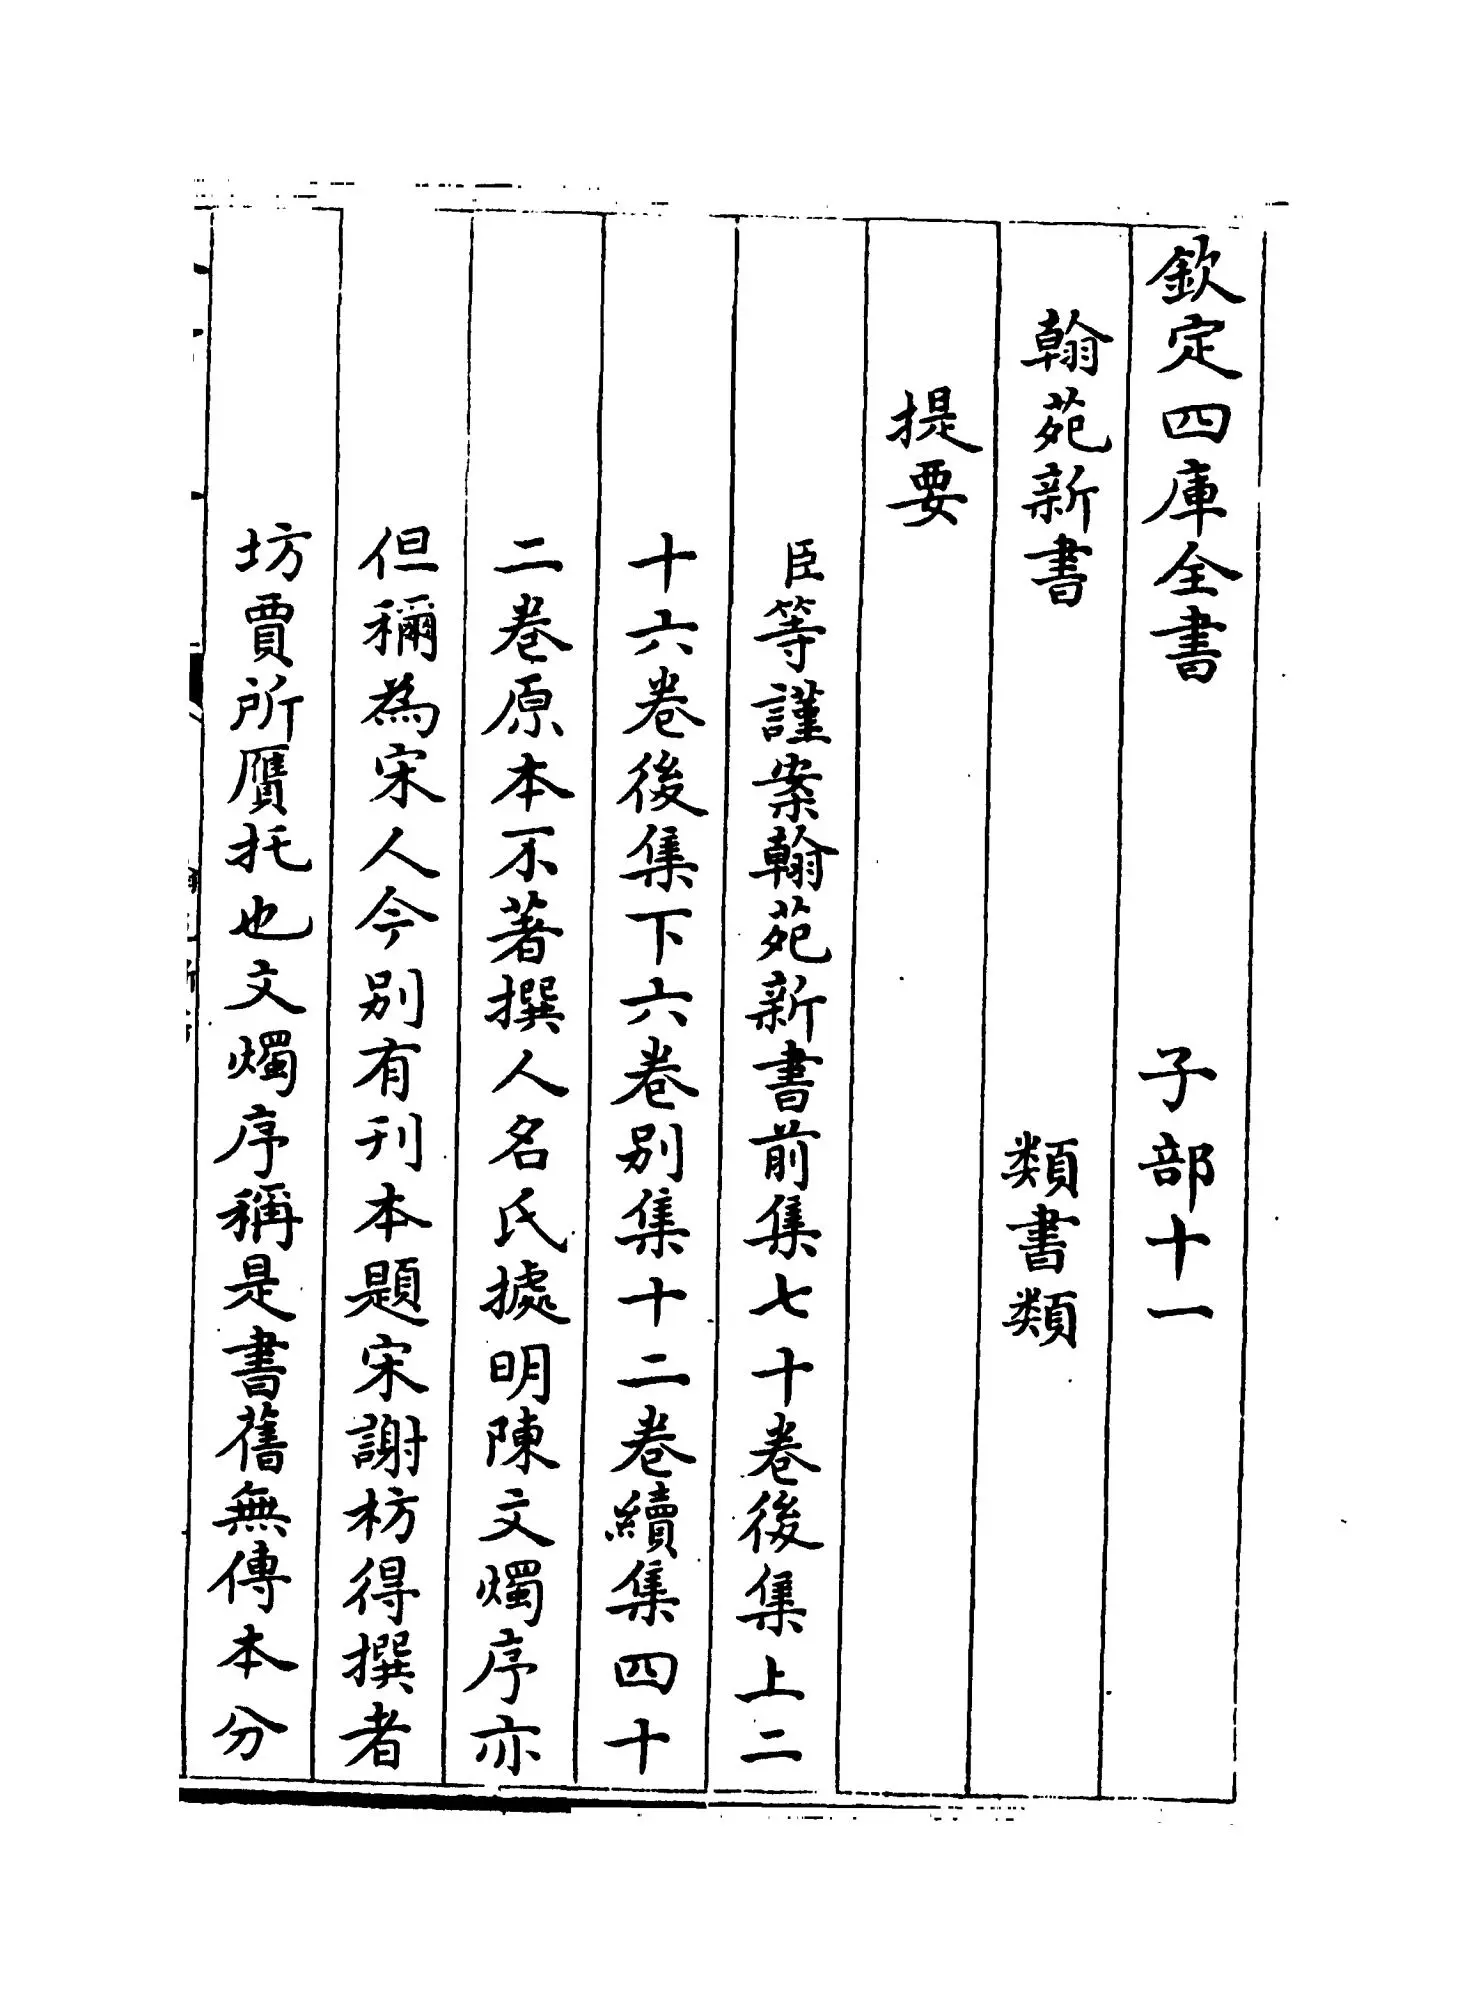 欽定四庫全書 子部十一
翰苑新書 類書類
提要
臣等謹案翰苑新書前集七十卷後集上二
十六卷後集下六卷别集十二卷續集四十
二卷原本不著撰人名氏據明陳文燭序亦
但稱為宋人今别有刊本題宋謝枋得撰者
坊賈所贗托也文燭序稱是書舊無傳本分